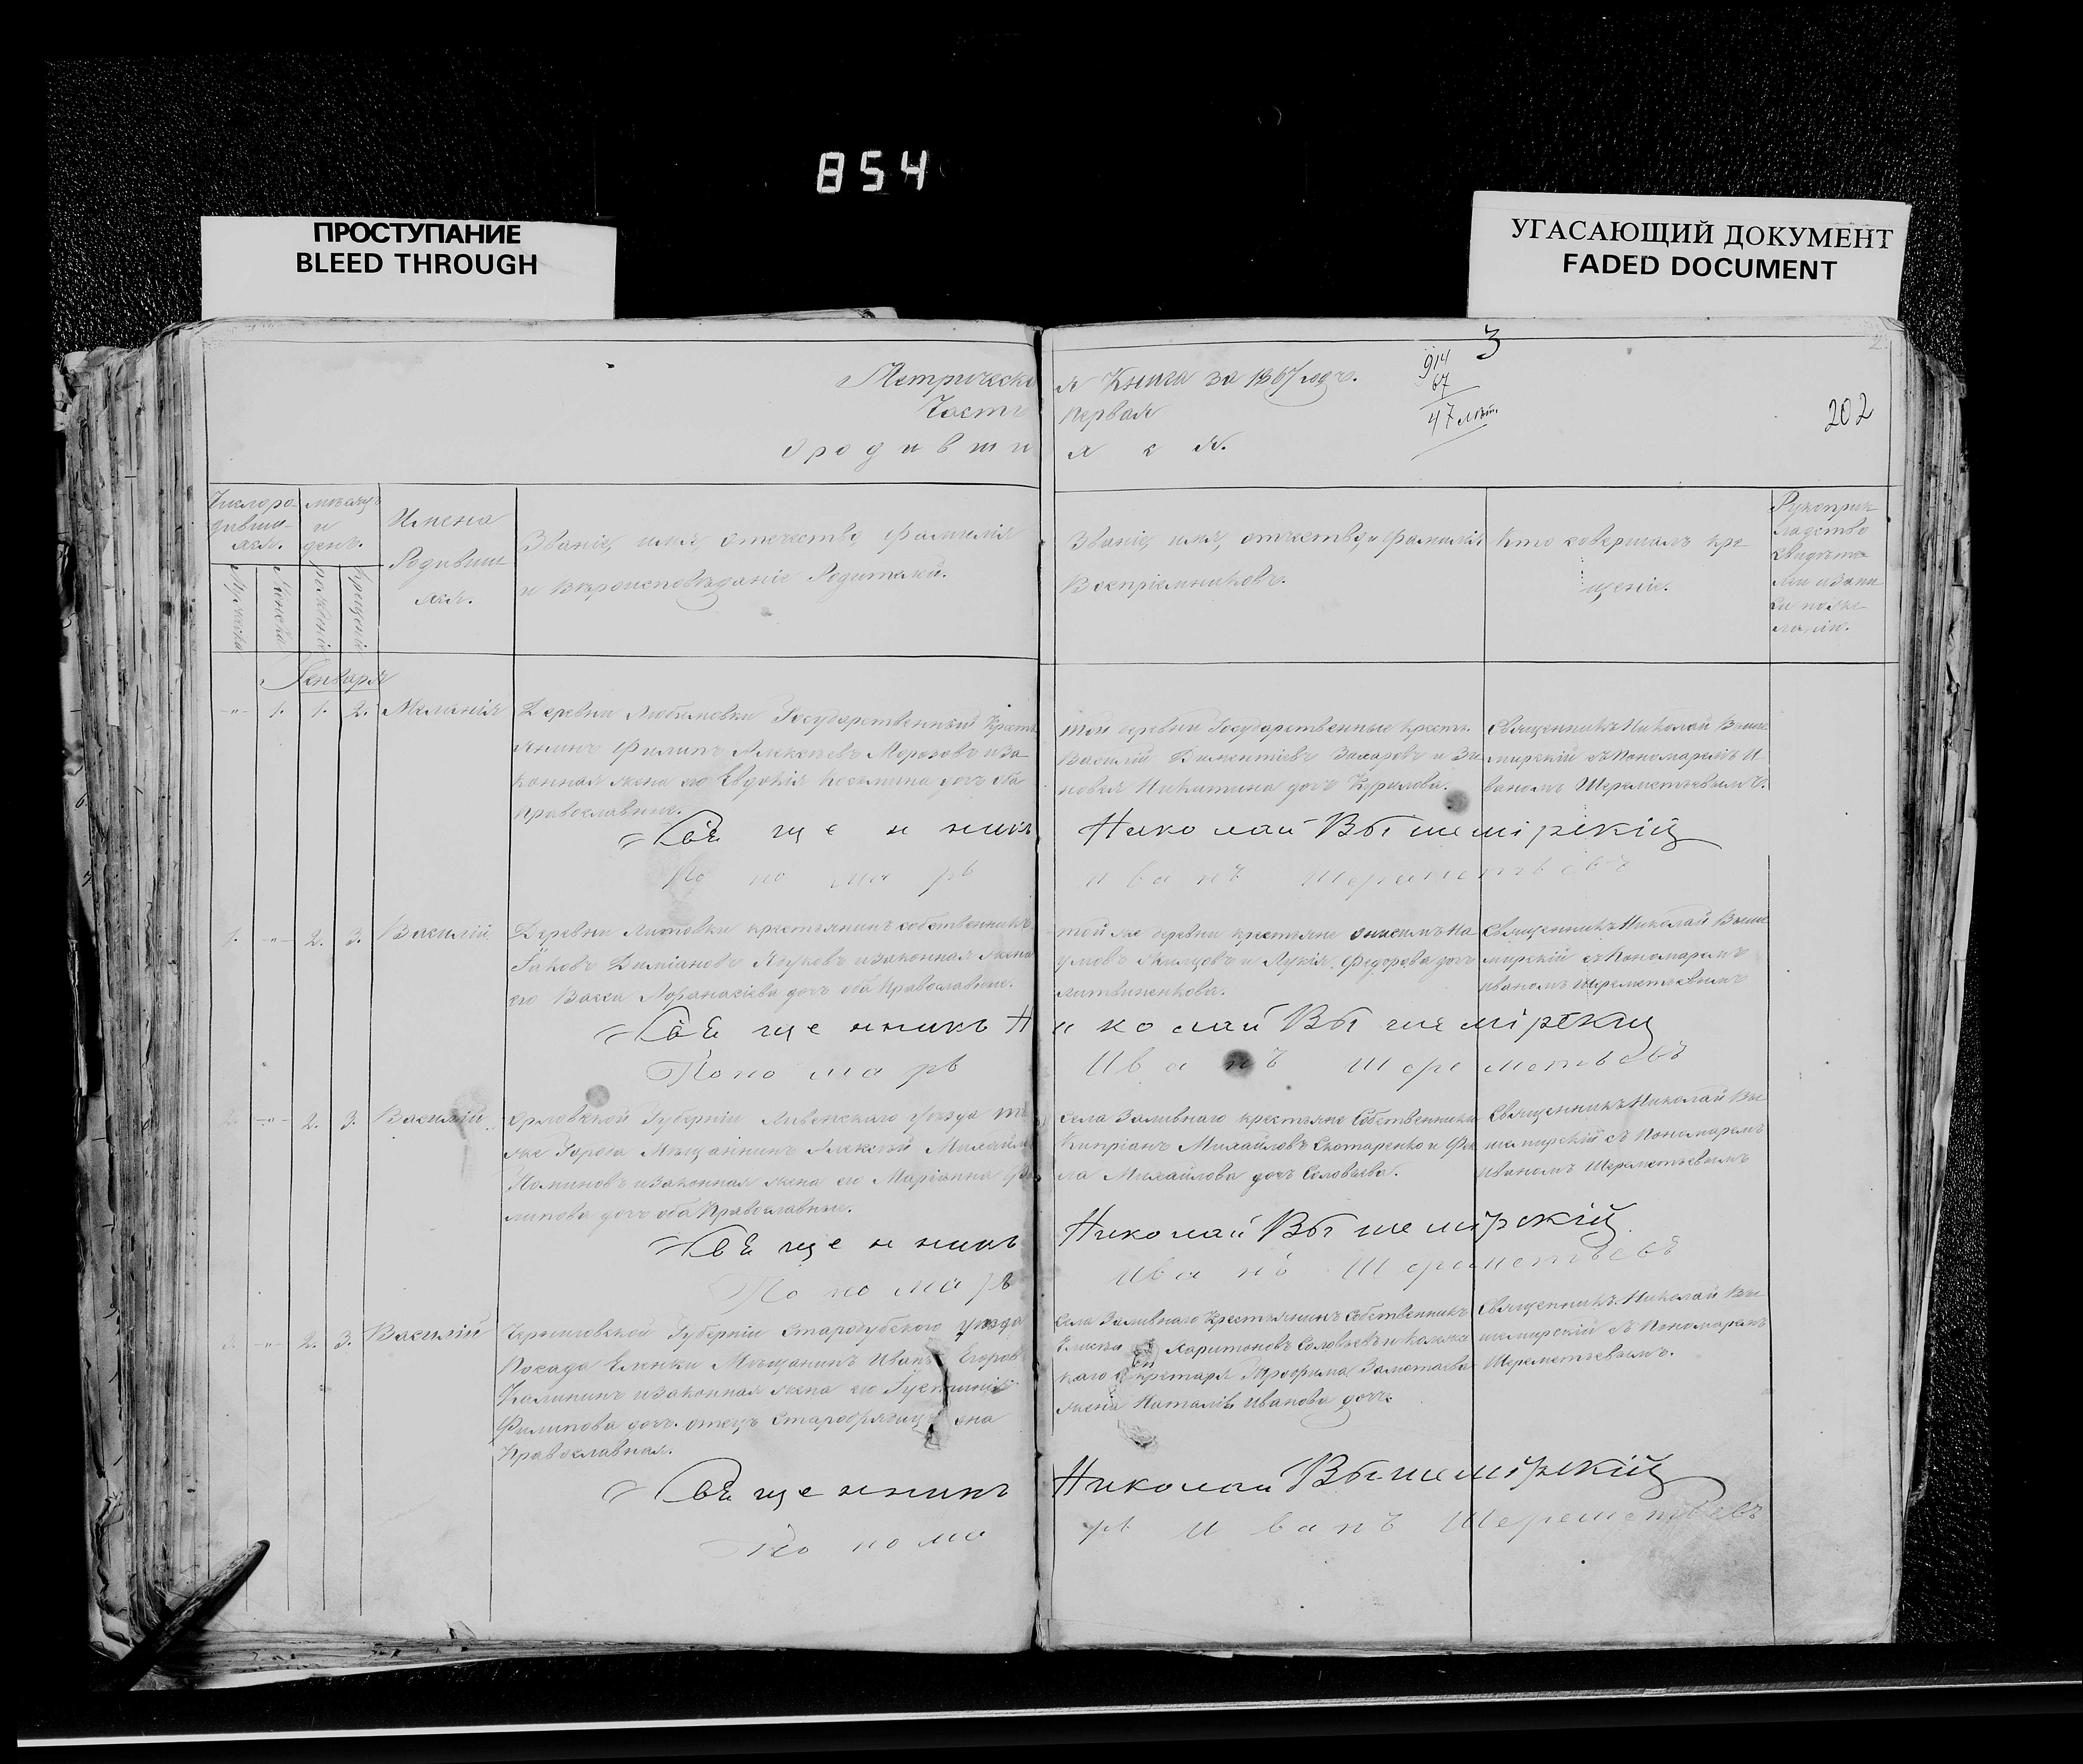 854
ПРОСТУПАНИЕ
BLEED THROUGH
УГАСАЮЩИЙ ДОКУМЕНТ
FADED DOCUMENT
3
Метрическая Книга за 1867 годъ.
914
67
47 лѣт.
Часть первая
202
о родившихся.
Число родившихся.
Мѣсяцъ и день.
Имена Родившихся.
Званіе, имя, отчество, фамилія
и Вѣроисповѣданіе Родителей.
Званіе, имя, отчество, и фамилія
Воспріемниковъ.
Кто совершалъ крещеніе.
Рукоприкладство свидѣтелей
Мужеска
Женска
рожденія
крещенія
Января
-"- 1. 1. 2. Меланія
Деревни Любимовки Государственный Крестьянинъ Филипъ Алексѣевъ Морозовъ и законная жена его Евдокія Косьмина дочь оба
православные.
той деревни Государственные крестьяне
Василій Дементіевъ Захаровъ и Зиновья Никитина дочь Курилова.
Священникъ Николай Вышемирскій съ Пономаремъ Иваномъ Шереметьевымъ.
Священникъ Николай Вышемірскій
Пономарь Иванъ Шереметьевъ
1. -"- 2. 3. Василій
Деревни Литовки крестьянинъ собственникъ
Іаковъ Даміановъ Жуковъ и законная жена
его Васса Афанасіева дочь оба Православные.
той же деревни крестьяне Онисимъ Наумовъ и Лукія Федорова дочь
Литвиненкова.
Священникъ Николай Вышемирскій съ Пономаремъ
Иваномъ Шереметьевымъ
Священникъ Николай Вышемірскій
Пономарь Иванъ Шереметьевъ
2. -"- 2. 3. Василій
Орловской Губерніи Ливенскаго уѣзда
же Города Мѣщанинъ Алексѣй Михайловъ
и законная жена его Маріанна Филипова дочь оба Православные.
Села Заливнаго крестьяне Собственники
Кипріанъ Михайловъ Скотаренко и
Михайлова дочь Соловьева.
Священникъ Николай Вышемирскій съ Пономаремъ
Иваномъ Шереметьевымъ
Священникъ Николай Вышемірскій
Пономарь Иванъ Шереметьевъ
-"- 2. 3. Василій
Черниговской Губерніи Стародубского уѣзда
Посада Еленки Мѣщанинъ Иванъ Егоровъ
Калининъ и законная жена его Іустинія
Филипова дочь. отецъ Старообрядецъ она
Православная.
Села Заливнаго Крестьянинъ Собственникъ
Харитоновъ Соловьевъ и
Секретаря Трофима Заметаева
жена Наталія Иванова дочь.
Священникъ Николай Вышемирскій съ Пономаремъ
Шереметьевымъ.
Священникъ Николай Вышемірскій
Пономарь Иванъ Шереметьевъ